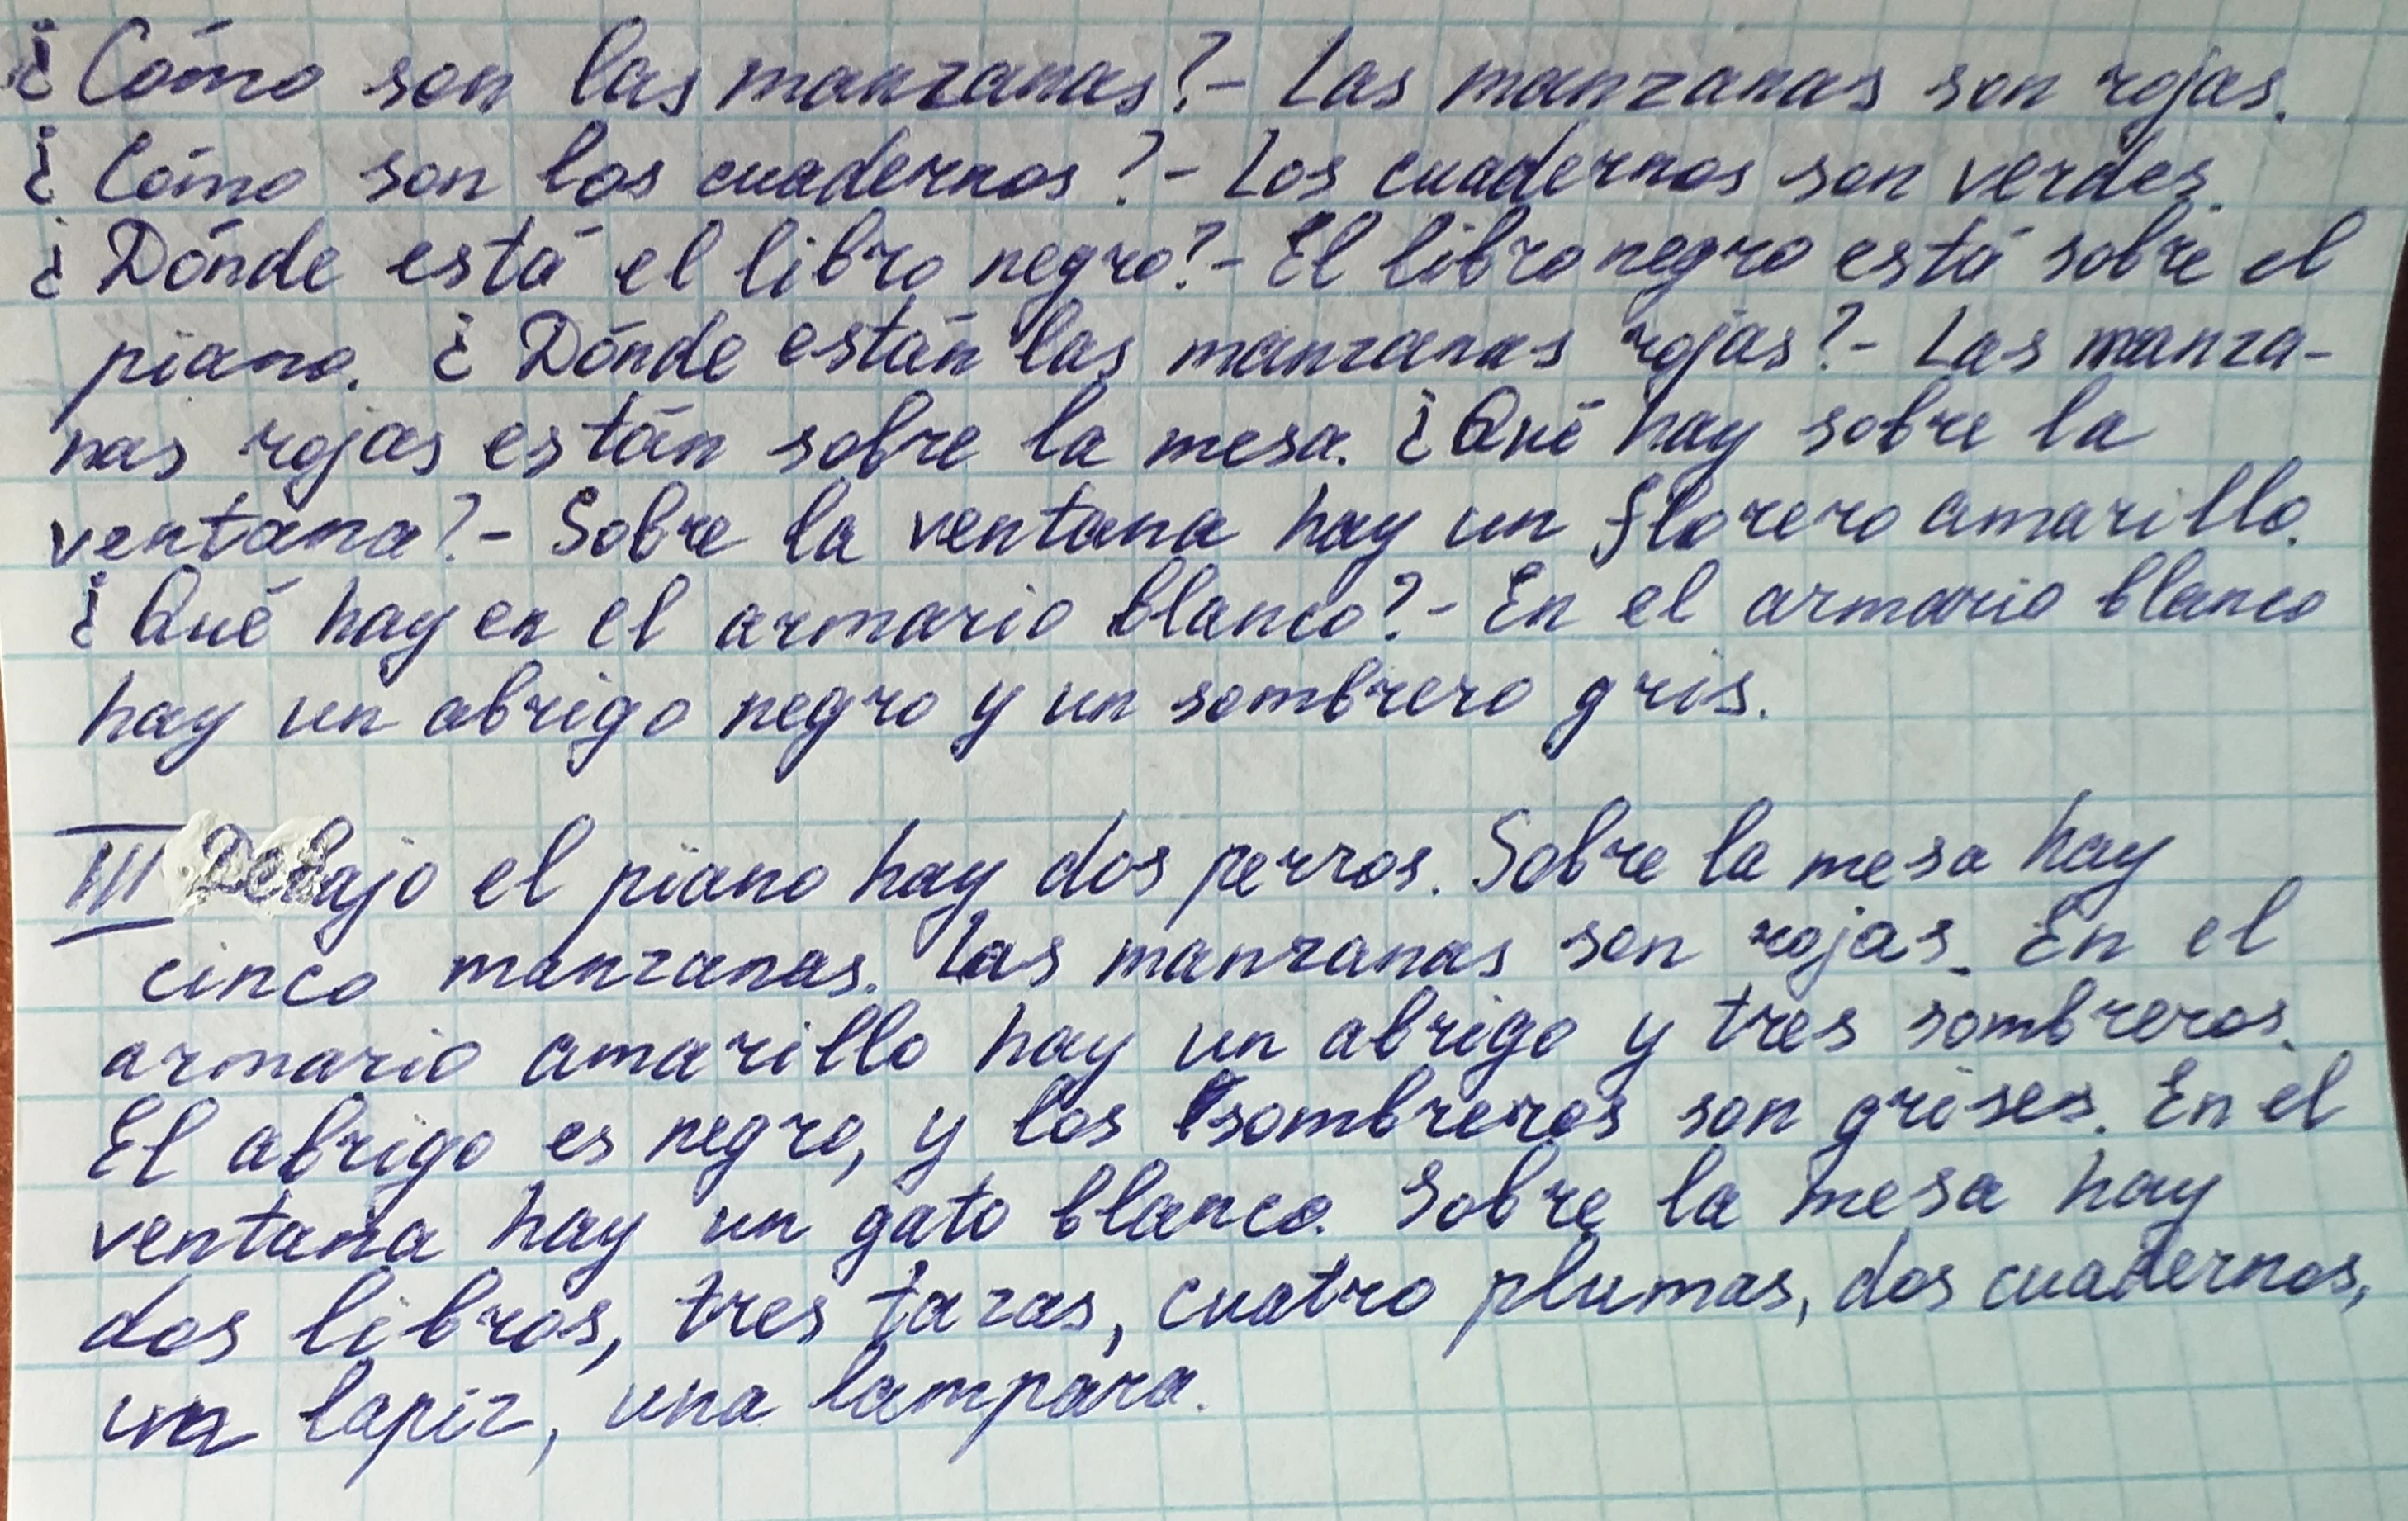 ¿Cómo son las manzanas?- Las manzanas son rojas.
¿Cómo son los cuadernos?- Los cuadernos son verdes.
¿Dónde está el libro negro?- El libro negro está sobre el
piano. ¿Dónde están las manzanas rojas?- Las manza-
nas rojas están sobre la mesa. ¿Qué hay sobre la
ventana?- Sobre la ventana hay un florero amarillo.
¿Qué hay en el armario blanco?- En el armario blanco
hay un abrigo negro y un sombrero gris.
III Debajo el piano hay dos perros. Sobre la mesa hay
cinco manzanas. Las manzanas son rojas. En el
armario amarillo hay un abrigo y tres sombreros.
El abrigo es negro, y los sombreros son grises. En el
ventana hay un gato blanco. Sobre la mesa hay
dos libros, tres tazas, cuatro plumas, dos cuadernos,
un lapiz, una lampara.